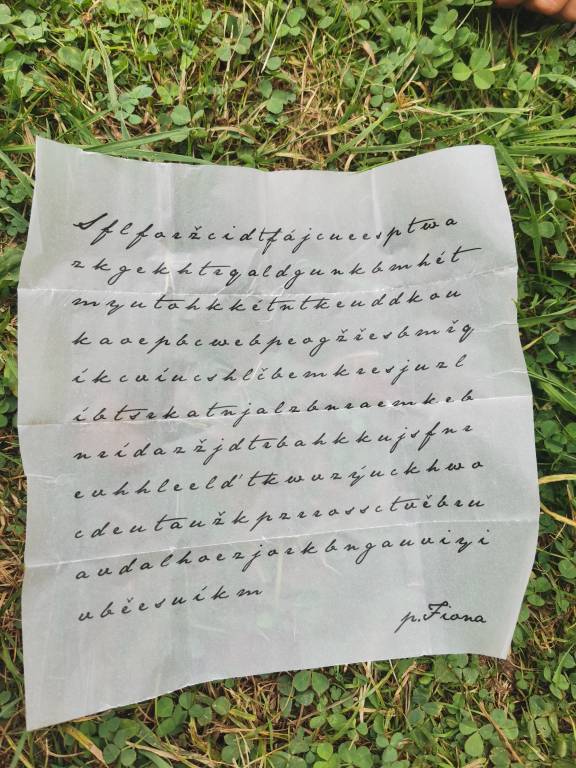 Sflforžcidtfájcueesptwa
zkgekhtrqoldgunkbmhét
myutohkkétntkeuddkou
kaoepbcwebpeogžřesbmřq
íkcvíucshlčbemkresjuzl
íbtsrkatnjalzbnraemkeb
nrídazžjdtrbahkkujsfnr
evhhleelďtkwvzýuckhwo
cdeutaužkpzrrossctvěbru
avdalhoezjorkbngauviyi
vběesuíkm
p.Fiona